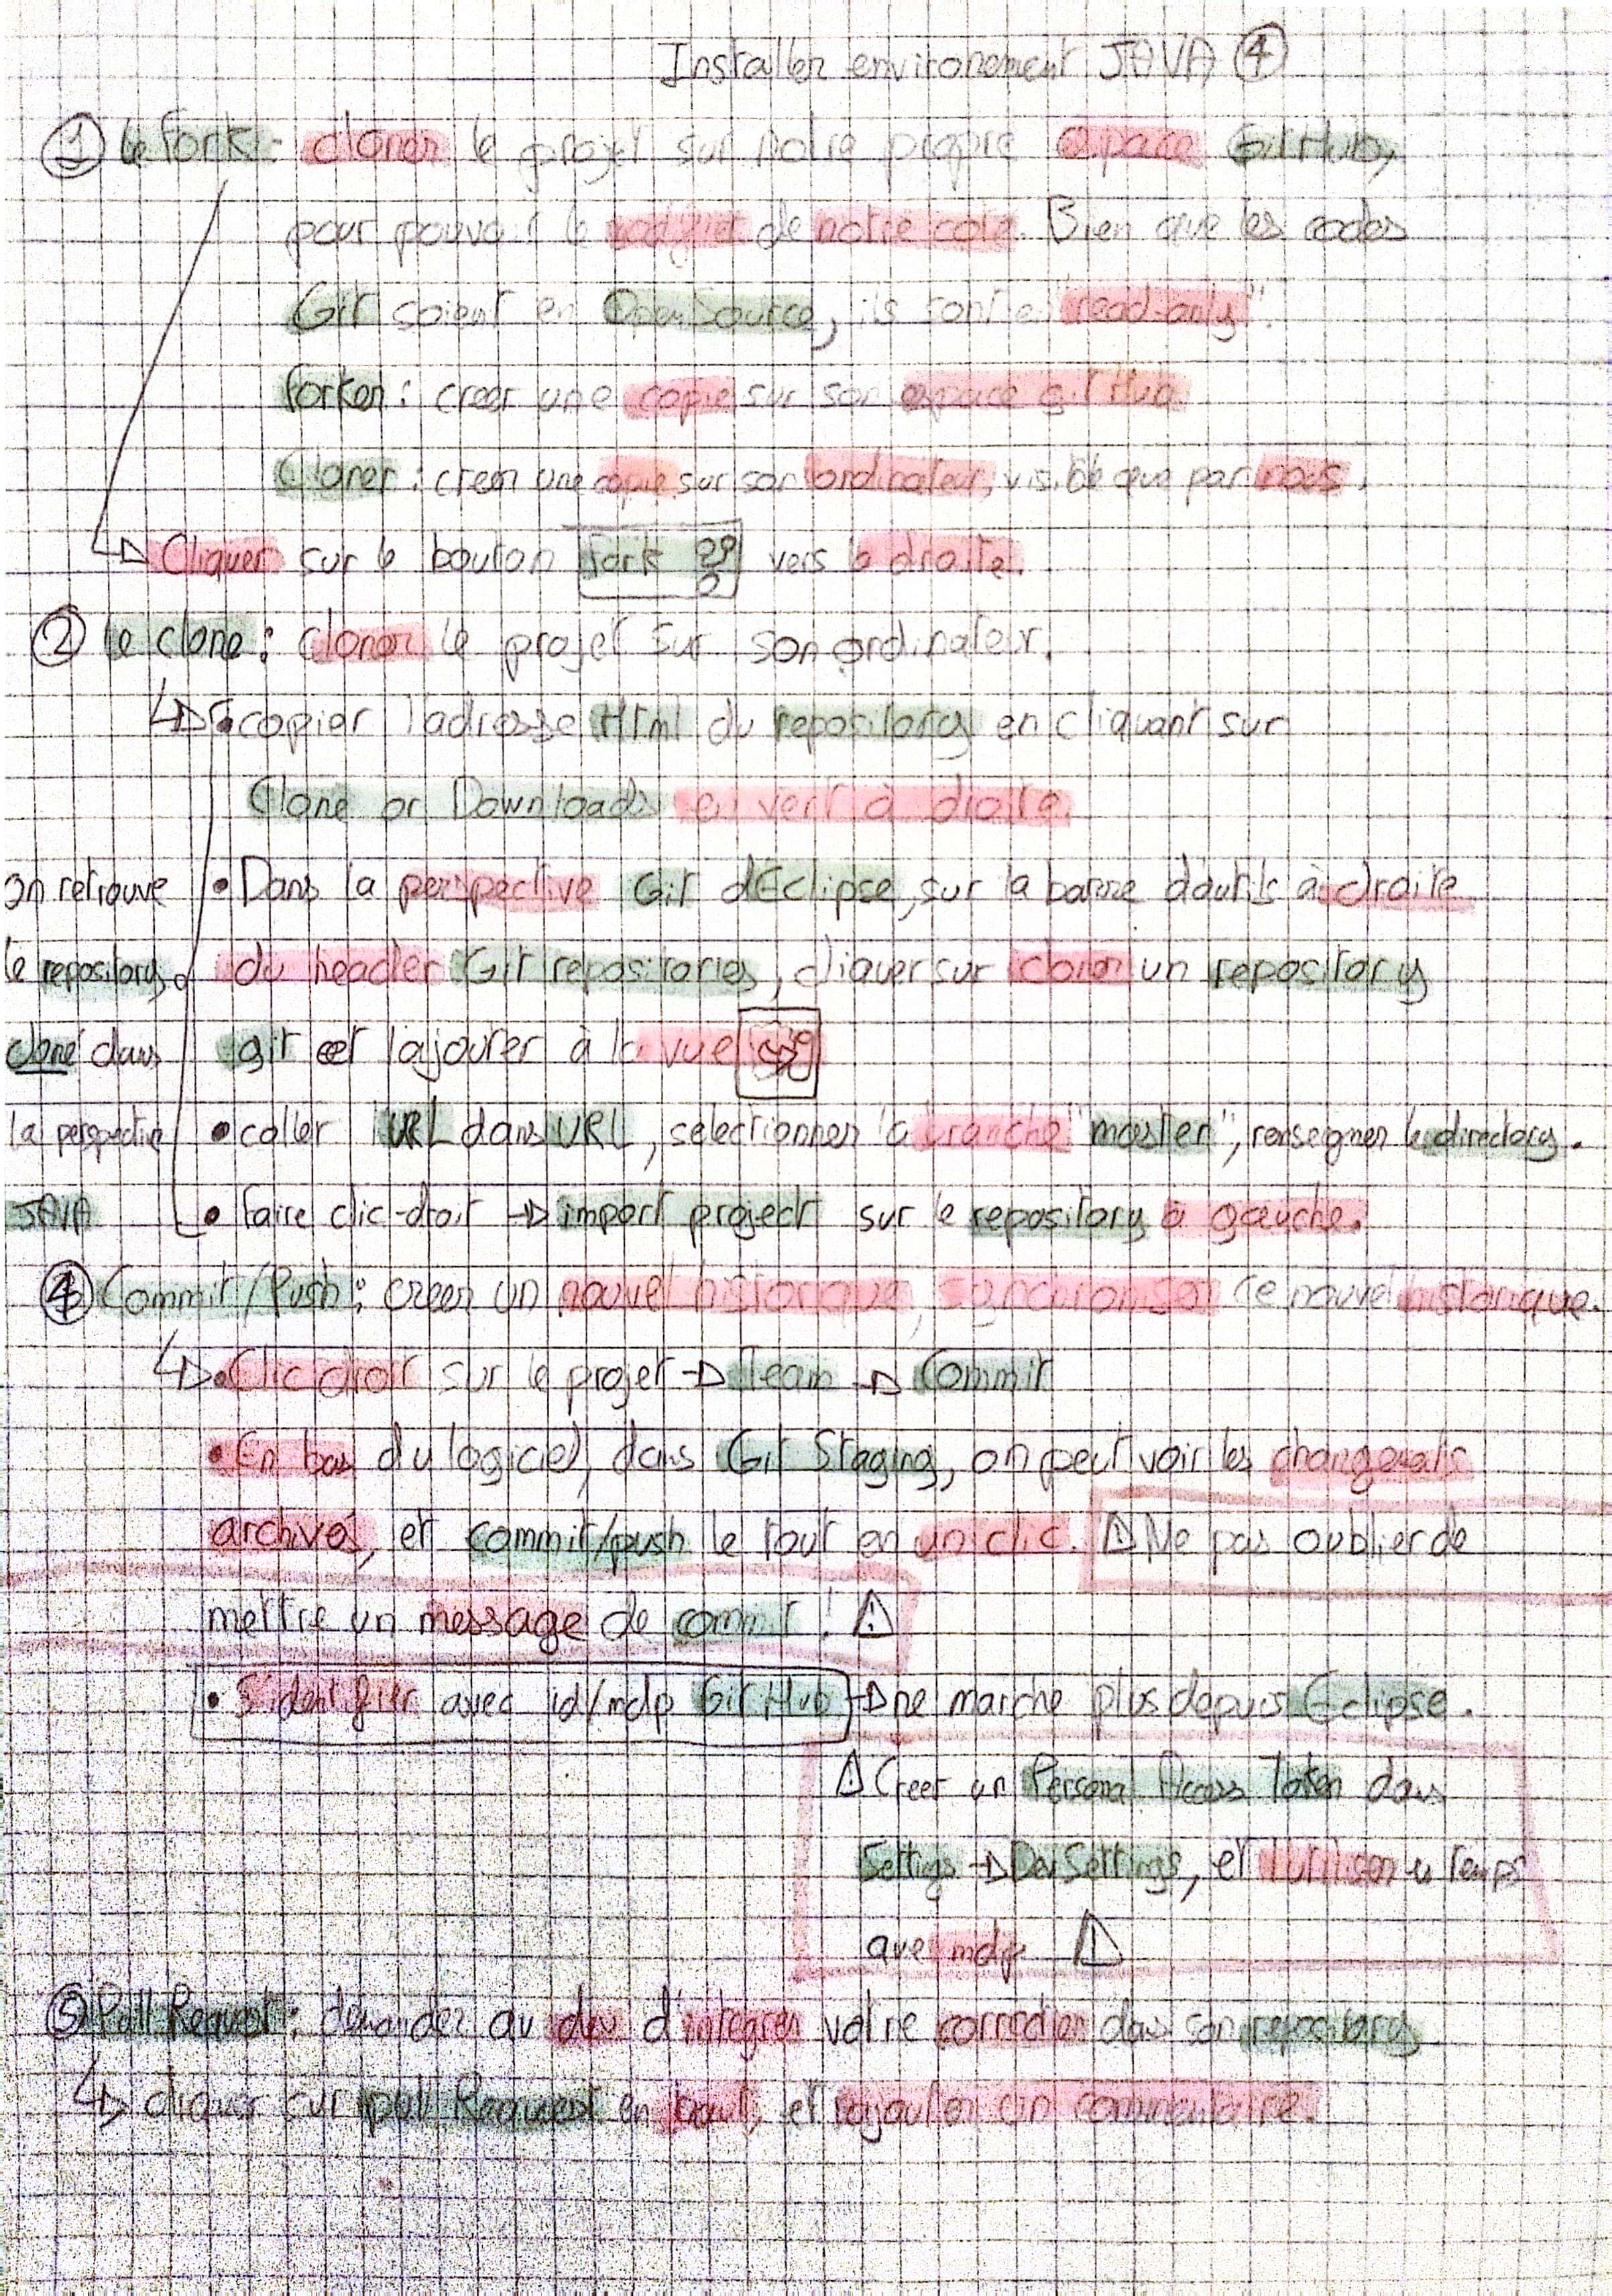 Installer environement JAVA ④
① Le Fork : cloner le projet sur notre propre espace GitHub,
pour pouvoir le modifier de notre coté. Bien que les codes
Git soient en OpenSource, ils sont en "read-only".
Forker : creer une copie sur son espace gitHub.
Cloner : creer une copie sur son ordinateur, visible que par nous.
Cliquer sur le bouton Fork vers la droite.
② Le clone : cloner le projet sur son ordinateur.
• copier l'adresse Html du repository en cliquant sur
Clone or Downloads en vert à droite.
• Dans la perspective Git d'Eclipse, sur la barre d'outils à droite
du header Git repositories, cliquer sur cloner un repository
git et l'ajouter à la vue
• coller URL dans URL, selectionner la branche "master", renseigner le directory.
• Faire clic-droit → import project sur le repository à gauche.
on retrouve
le repository
cloné dans
la perspective
JAVA
④ Commit/Push : creer un nouvel historique, synchroniser ce nouvel historique.
• Clic droit sur le projet → Team → Commit
• En bas du logiciel, dans Git Staging, on peut voir les changements
archivés, et commit/push le tout en un clic. ⚠ Ne pas oublier de
mettre un message de commit ! ⚠
• S'identifier avec id/mdp GitHub → ne marche plus depuis Eclipse.
⚠ Creer un Personal Access Token dans
Settings → DevSettings, et l'utiliser en temps
que mdp ⚠
⑤ Pull Request : demander au dev d'integrer votre correction dans son repository
cliquer sur pull Request en haut, et rajouter un commentaire.